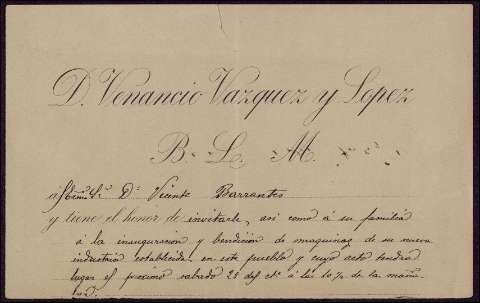 D. Venancio Vazquez y Lopez
B. L. M.
á Excmo. Sr. Dn. Vicente Barrantes
y tiene el honor de invitarle, asi como á su familia
á la inauguracion y bendicion de maquinas de su nueva
industria establecida en este pueblo y cuyo acto tendra
lugar el proximo sabado 28 del á las 10 ½ de la maña